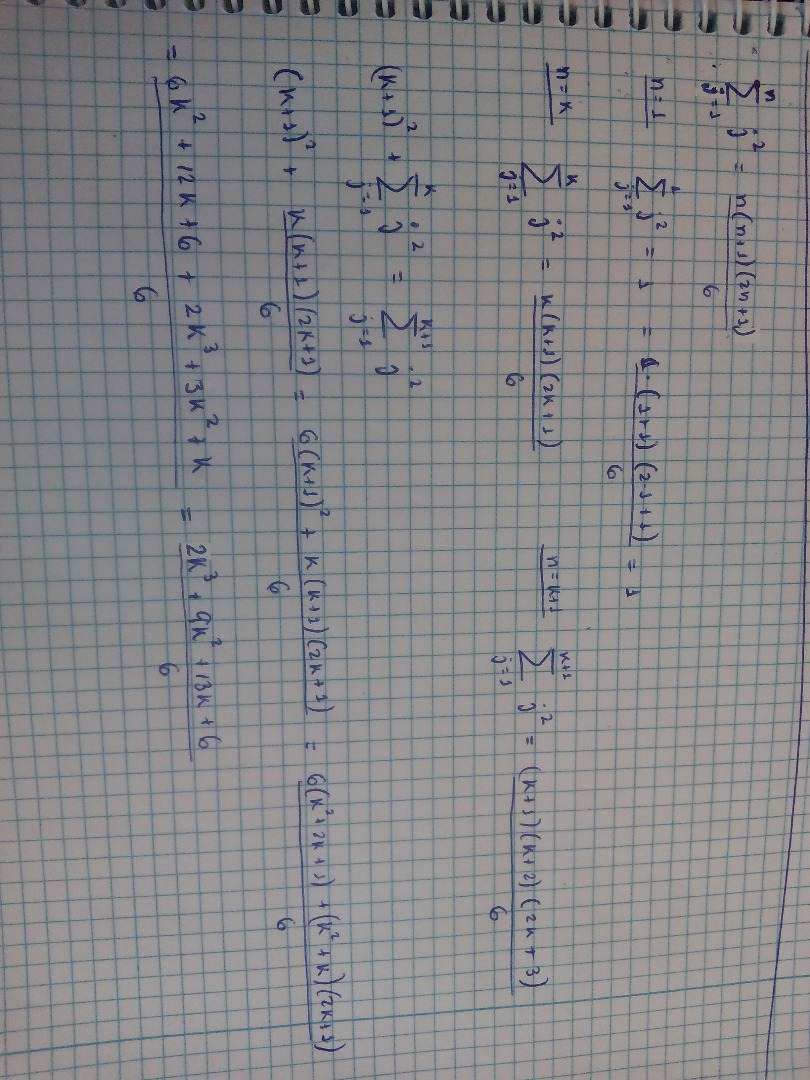 ∑_{j=1}^{n} j² = n(n+1)(2n+1)/6
n=1 ∑_{j=1}^{1} j² = 1 = 1·(1+1)(2·1+1)/6 = 1
n=k ∑_{j=1}^{k} j² = k(k+1)(2k+1)/6 n=k+1 ∑_{j=1}^{k+1} j² = (k+1)(k+2)(2k+3)/6
(k+1)² + ∑_{j=1}^{k} j² = ∑_{j=1}^{k+1} j²
(k+1)² + k(k+1)(2k+1)/6 = 6(k+1)² + k(k+1)(2k+1)/6 = 6(k²+2k+1) + (k²+k)(2k+1)/6
= 6k² + 12k + 6 + 2k³ + 3k² + k/6 = 2k³ + 9k² + 13k + 6/6